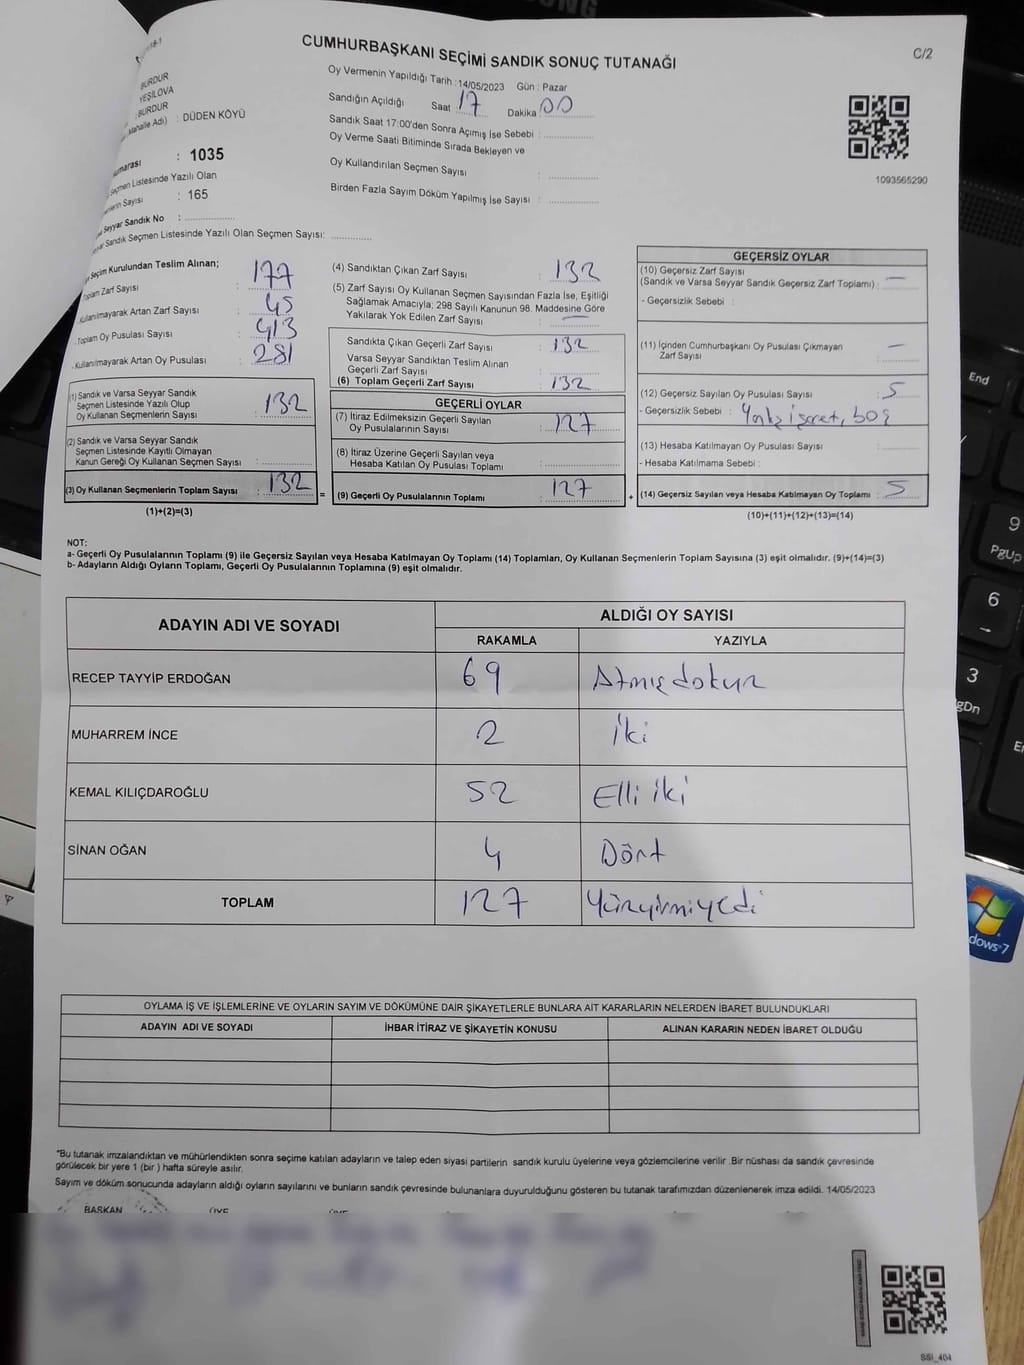 CUMHURBAŞKANI SEÇİMİ SANDIK SONUÇ TUTANAĞI
C/2
BURDUR
YEŞİLOVA
BURDUR
Mahalle Adı) : DÜDEN KÖYÜ
: 1035
Seçmen Listesinde Yazılı Olan
Sayısı : 165
Seyyar Sandık No : ....................
Sandık Seçmen Listesinde Yazılı Olan Seçmen Sayısı: ............
Oy Vermenin Yapıldığı Tarih : 14/05/2023 Gün : Pazar
Sandığın Açıldığı Saat 17 Dakika 00
Sandık Saat 17:00'den Sonra Açımış İse Sebebi : ................
Oy Verme Saati Bitiminde Sırada Bekleyen ve
Oy Kullandırılan Seçmen Sayısı : ................
Birden Fazla Sayım Döküm Yapılmış İse Sayısı : ................
1093565290
Seçim Kurulundan Teslim Alınan;
Toplam Zarf Sayısı : 177
Kullanılmayarak Artan Zarf Sayısı : 45
Toplam Oy Pusulası Sayısı : 413
Kullanılmayarak Artan Oy Pusulası : 281
(1) Sandık ve Varsa Seyyar Sandık
Seçmen Listesinde Yazılı Olup
Oy Kullanan Seçmenlerin Sayısı : 132
(2) Sandık ve Varsa Seyyar Sandık
Seçmen Listesinde Kayıtlı Olmayan
Kanun Gereği Oy Kullanan Seçmen Sayısı : ................
(3) Oy Kullanan Seçmenlerin Toplam Sayısı : 132 =
(1)+(2)=(3)
(4) Sandıktan Çıkan Zarf Sayısı : 132
(5) Zarf Sayısı Oy Kullanan Seçmen Sayısından Fazla İse, Eşitliği
Sağlamak Amacıyla; 298 Sayılı Kanunun 98. Maddesine Göre
Yakılarak Yok Edilen Zarf Sayısı : —
Sandıkta Çıkan Geçerli Zarf Sayısı : 132
Varsa Seyyar Sandıktan Teslim Alınan
Geçerli Zarf Sayısı : ................
(6) Toplam Geçerli Zarf Sayısı : 132
GEÇERLİ OYLAR
(7) İtiraz Edilmeksizin Geçerli Sayılan
Oy Pusulalarının Sayısı : 127
(8) İtiraz Üzerine Geçerli Sayılan veya
Hesaba Katılan Oy Pusulası Toplamı : ................
(9) Geçerli Oy Pusulalarının Toplamı : 127 +
GEÇERSİZ OYLAR
(10) Geçersiz Zarf Sayısı
(Sandık ve Varsa Seyyar Sandık Geçersiz Zarf Toplamı) : —
- Geçersizlik Sebebi :
(11) İçinden Cumhurbaşkanı Oy Pusulası Çıkmayan
Zarf Sayısı : —
(12) Geçersiz Sayılan Oy Pusulası Sayısı : 5
- Geçersizlik Sebebi : işaret, boş
(13) Hesaba Katılmayan Oy Pusulası Sayısı : ............
- Hesaba Katılmama Sebebi :
(14) Geçersiz Sayılan veya Hesaba Katılmayan Oy Toplamı : 5
(10)+(11)+(12)+(13)=(14)
NOT:
a- Geçerli Oy Pusulalarının Toplamı (9) ile Geçersiz Sayılan veya Hesaba Katılmayan Oy Toplamı (14) Toplamları, Oy Kullanan Seçmenlerin Toplam Sayısına (3) eşit olmalıdır. (9)+(14)=(3)
b- Adayların Aldığı Oyların Toplamı, Geçerli Oy Pusulalarının Toplamına (9) eşit olmalıdır.
ADAYIN ADI VE SOYADI
ALDIĞI OY SAYISI
RAKAMLA YAZIYLA
RECEP TAYYİP ERDOĞAN 69 Atmışdokuz
MUHARREM İNCE 2 İki
KEMAL KILIÇDAROĞLU 52 Elli iki
SİNAN OĞAN 4 Dört
TOPLAM 127 Yüzyirmiyedi
OYLAMA İŞ VE İŞLEMLERİNE VE OYLARIN SAYIM VE DÖKÜMÜNE DAİR ŞİKAYETLERLE BUNLARA AİT KARARLARIN NELERDEN İBARET BULUNDUKLARI
ADAYIN ADI VE SOYADI İHBAR İTİRAZ VE ŞİKAYETİN KONUSU ALINAN KARARIN NEDEN İBARET OLDUĞU
*Bu tutanak imzalandıktan ve mühürlendikten sonra seçime katılan adayların ve talep eden siyasi partilerin sandık kurulu üyelerine veya gözlemcilerine verilir .Bir nüshası da sandık çevresinde
görülecek bir yere 1 (bir ) hafta süreyle asılır.
Sayım ve döküm sonucunda adayların aldığı oyların sayılarını ve bunların sandık çevresinde bulunanlara duyurulduğunu gösteren bu tutanak tarafımızdan düzenlenerek imza edildi. 14/05/2023
BAŞKAN ÜYE
SSI_404
End
9
PgUp
6
3
PgDn
dows 7